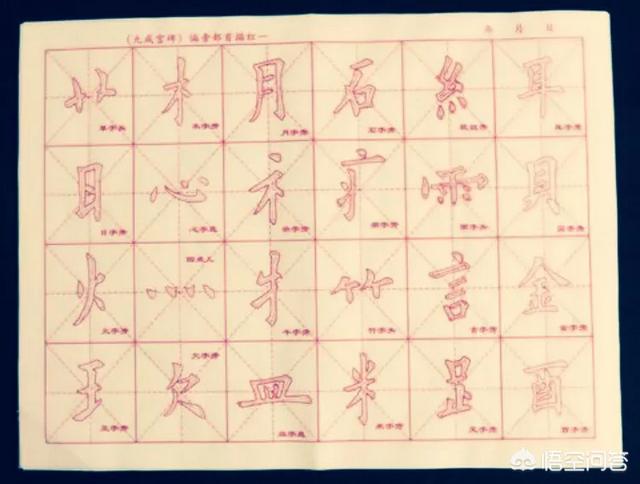 《九成宫碑》偏旁部首描红一 年 月 日
艹 木 月 石 糸 耳
草字头 木字旁 月字旁 石字旁 绞丝旁 耳字旁
目 心 礻 疒 雨 貝
目字旁 心字底 病字旁 雨字头 贝字旁
四点底
火 灬 牛 竹 言 金
火字旁 牛字旁 竹字头 言字旁 金字旁
欠字旁
王 欠 皿 米 足 酉
王字旁 皿字底 米字旁 足字旁 酉字旁
悟空问答